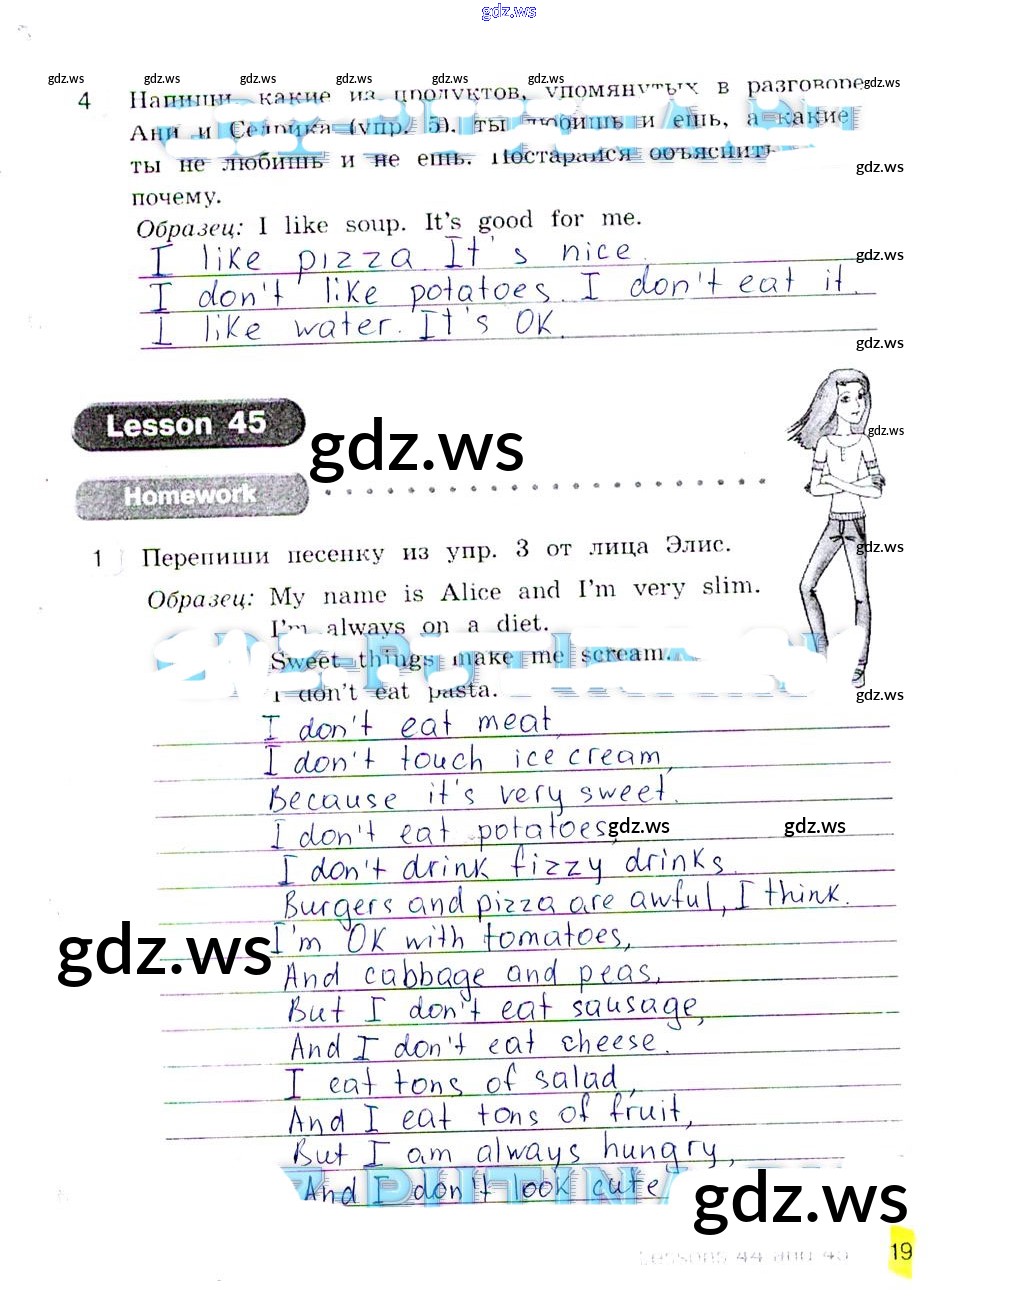 gdz.ws
gdz.ws gdz.ws gdz.ws gdz.ws gdz.ws gdz.ws
4 Напиши, какие из продуктов, упомянутых в разговоре gdz.ws
Ани и Седрика (упр. 5), ты любишь и ешь, а какие
ты не любишь и не ешь. Постарайся объяснить gdz.ws
почему.
Образец: I like soup. It's good for me.
I like pizza. It's nice. gdz.ws
I don't like potatoes. I don't eat it.
I like water. It's OK.
gdz.ws
Lesson 45
gdz.ws
gdz.ws
Homework
1 Перепиши песенку из упр. 3 от лица Элис. gdz.ws
Образец: My name is Alice and I'm very slim.
I'm always on a diet.
Sweet things make me scream.
I don't eat pasta. gdz.ws
I don't eat meat,
I don't touch ice cream,
Because it's very sweet.
I don't eat potatoes, gdz.ws gdz.ws
I don't drink fizzy drinks.
Burgers and pizza are awful, I think.
gdz.ws
I'm OK with tomatoes,
And cabbage and peas,
But I don't eat sausage,
And I don't eat cheese.
I eat tons of salad,
And I eat tons of fruit,
But I am always hungry,
And I don't look cute
gdz.ws
Lessons 44 and 45 19